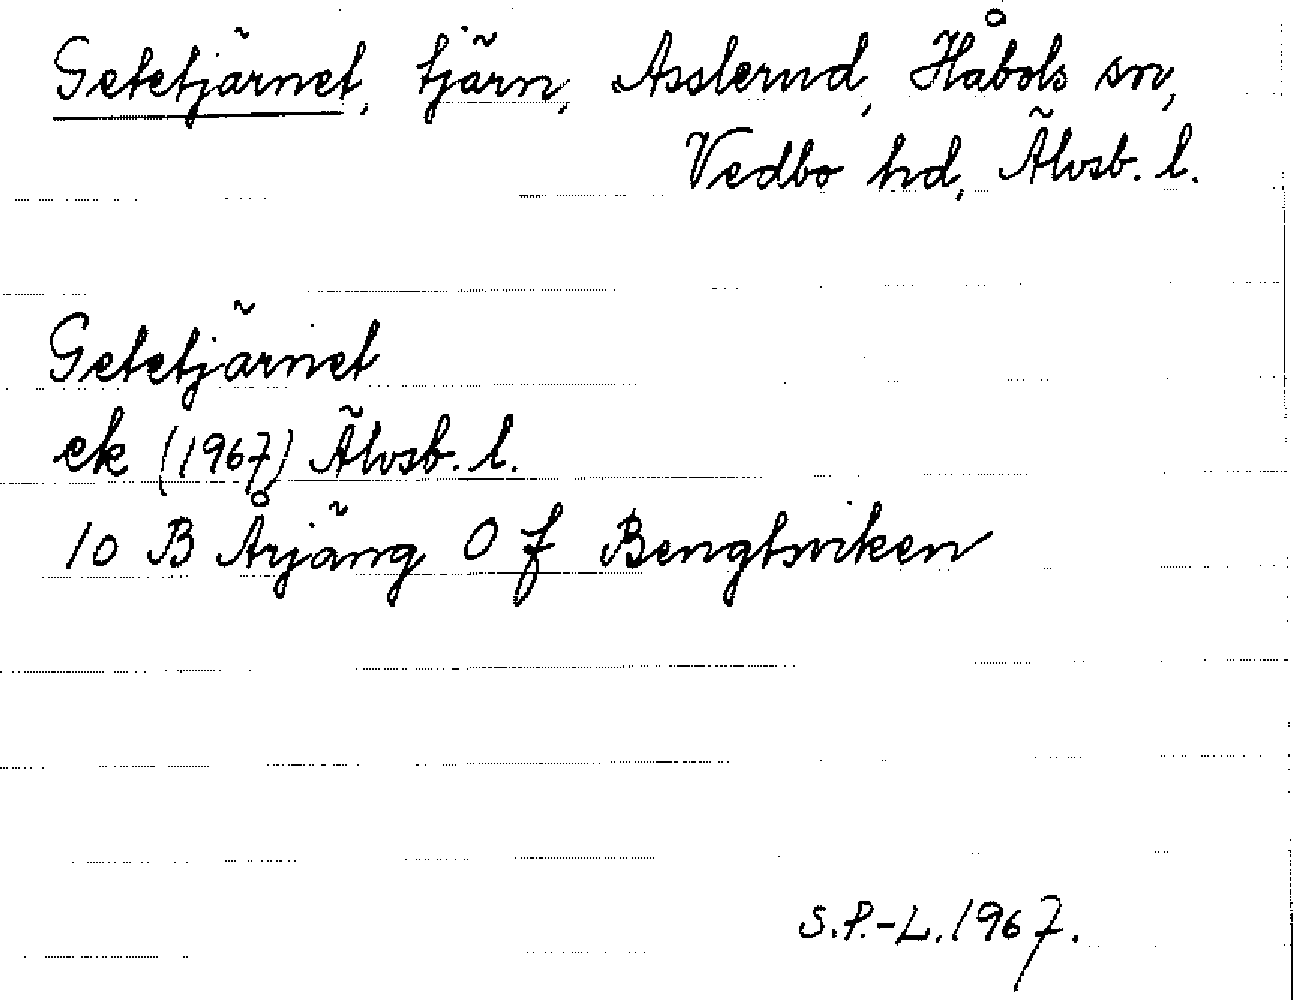 Getetjärnet, tjärn, Asslerud, Håbols sn,
Vedbo hd, Älvsb. l.
Getetjärnet
ek (1967) Älvsb. l.
10 B Årjäng 0 f Bengtsviken
S.P.-L. 1967.